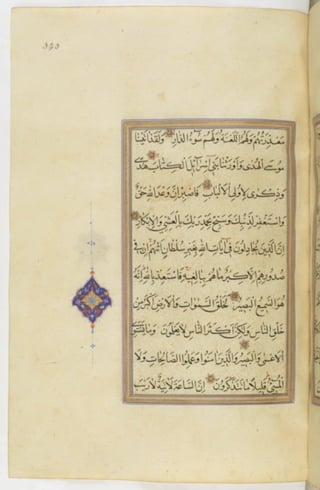 معذرتهم ولهم اللعنة ولهم سوء الدار ولقد اتينا
موسى الهدى واورثنا بني اسرائيل الكتاب هدى
وذكرى لاولي الالباب فاصبر ان وعد الله حق
واستغفر لذنبك وسبح بحمد ربك بالعشي والابكار
ان الذين يجادلون في ايات الله بغير سلطان اتيهم ان في
صدورهم الا كبر ما هم ببالغيه فاستعذ بالله انه
هو السميع البصير لخلق السموات والارض اكبر من
خلق الناس ولكن اكثر الناس لا يعلمون وما يستوي
الاعمى والبصير والذين امنوا وعملوا الصالحات ولا
المسيء قليلا ما تتذكرون ان الساعة لاتية لا ريب